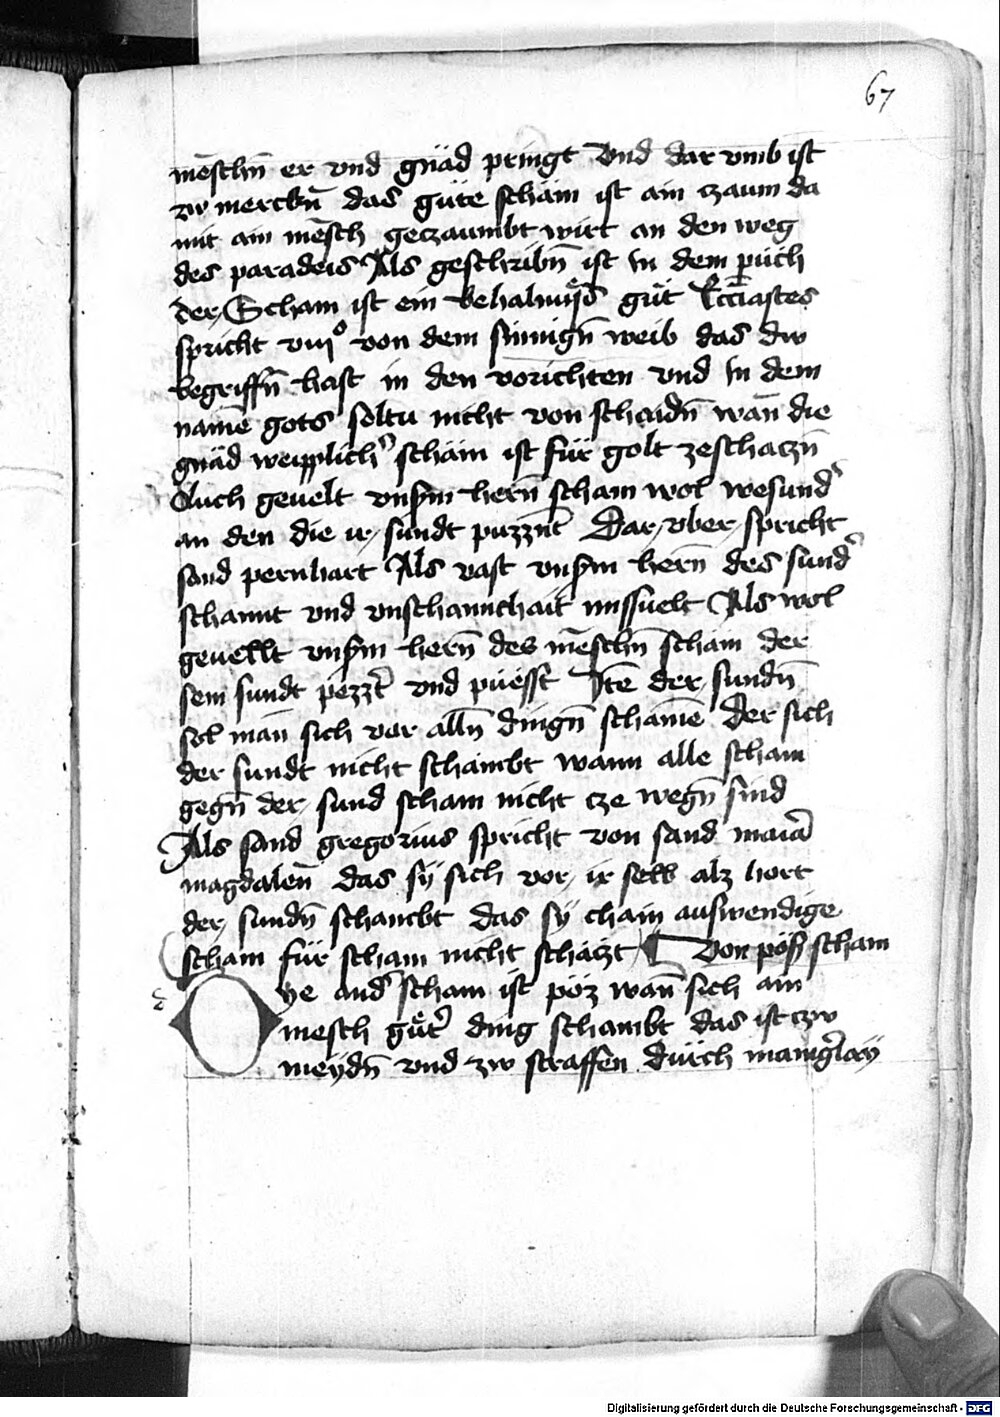 67
mēschn̄ er vnd gnäd pringt Vnd dar vmb ist
zw merckn̄ das güte schäm ist ain czaum da
mit ain mēsch geczaumbt wirt an den weg
des paradeis Als geschribn̄ ist in dem püch
der Scham ist ein behaltnuß güt Eccīastes
spricht viijº von dem sinnign̄ weib das dw
begriffn̄ hast in den vorichten vnd in dem
namē gots soltu nicht von schaidn̄ wan̄ die
gnäd weipplich̾ schäm ist für golt zeschaczn̄
Auch geuelt vnßm hern̄ scham wol wesund̾
an den die ir sundt puzznt̄ Dar vber spricht
sand pernhart Als vast vnßm hern̄ des sund̾
schannt vnd vnschannchait missuelt Als wol
geuellt vnßm hern̄ des mēschn̄ scham der
sein sundt pezzt̾ vnd püesst Itē der sundn̄
sol man̄ sich vor alln̄ dingn̄ schamē Der sich
der sundt nicht schambt wann alle scham
gegn̄ der sund scham nicht cze wegn̄ sind
Als sand gregorius spricht von sand maiā
magdalen̄ das sÿ sich vor ir selb alz hort
der sundn̄ schambt das sÿ chain auswendige
scham für scham nicht schäczt Von pöß scham
Dye and̾ scham ist pöz wan̄ sich ain
mesch güt̾ ding schambt das ist czw
meydn̄ vnd zw straffen Durch manig̾laÿ
Digitalisierung gefördert durch die Deutsche Forschungsgemeinschaft - DFG